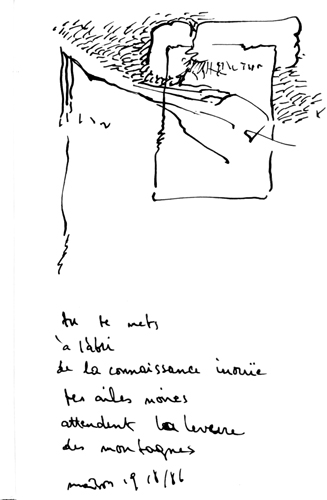 tu te mets
à l'abri
de la connaissance inouïe
tes ailes noires
attendent la levure
des montagnes